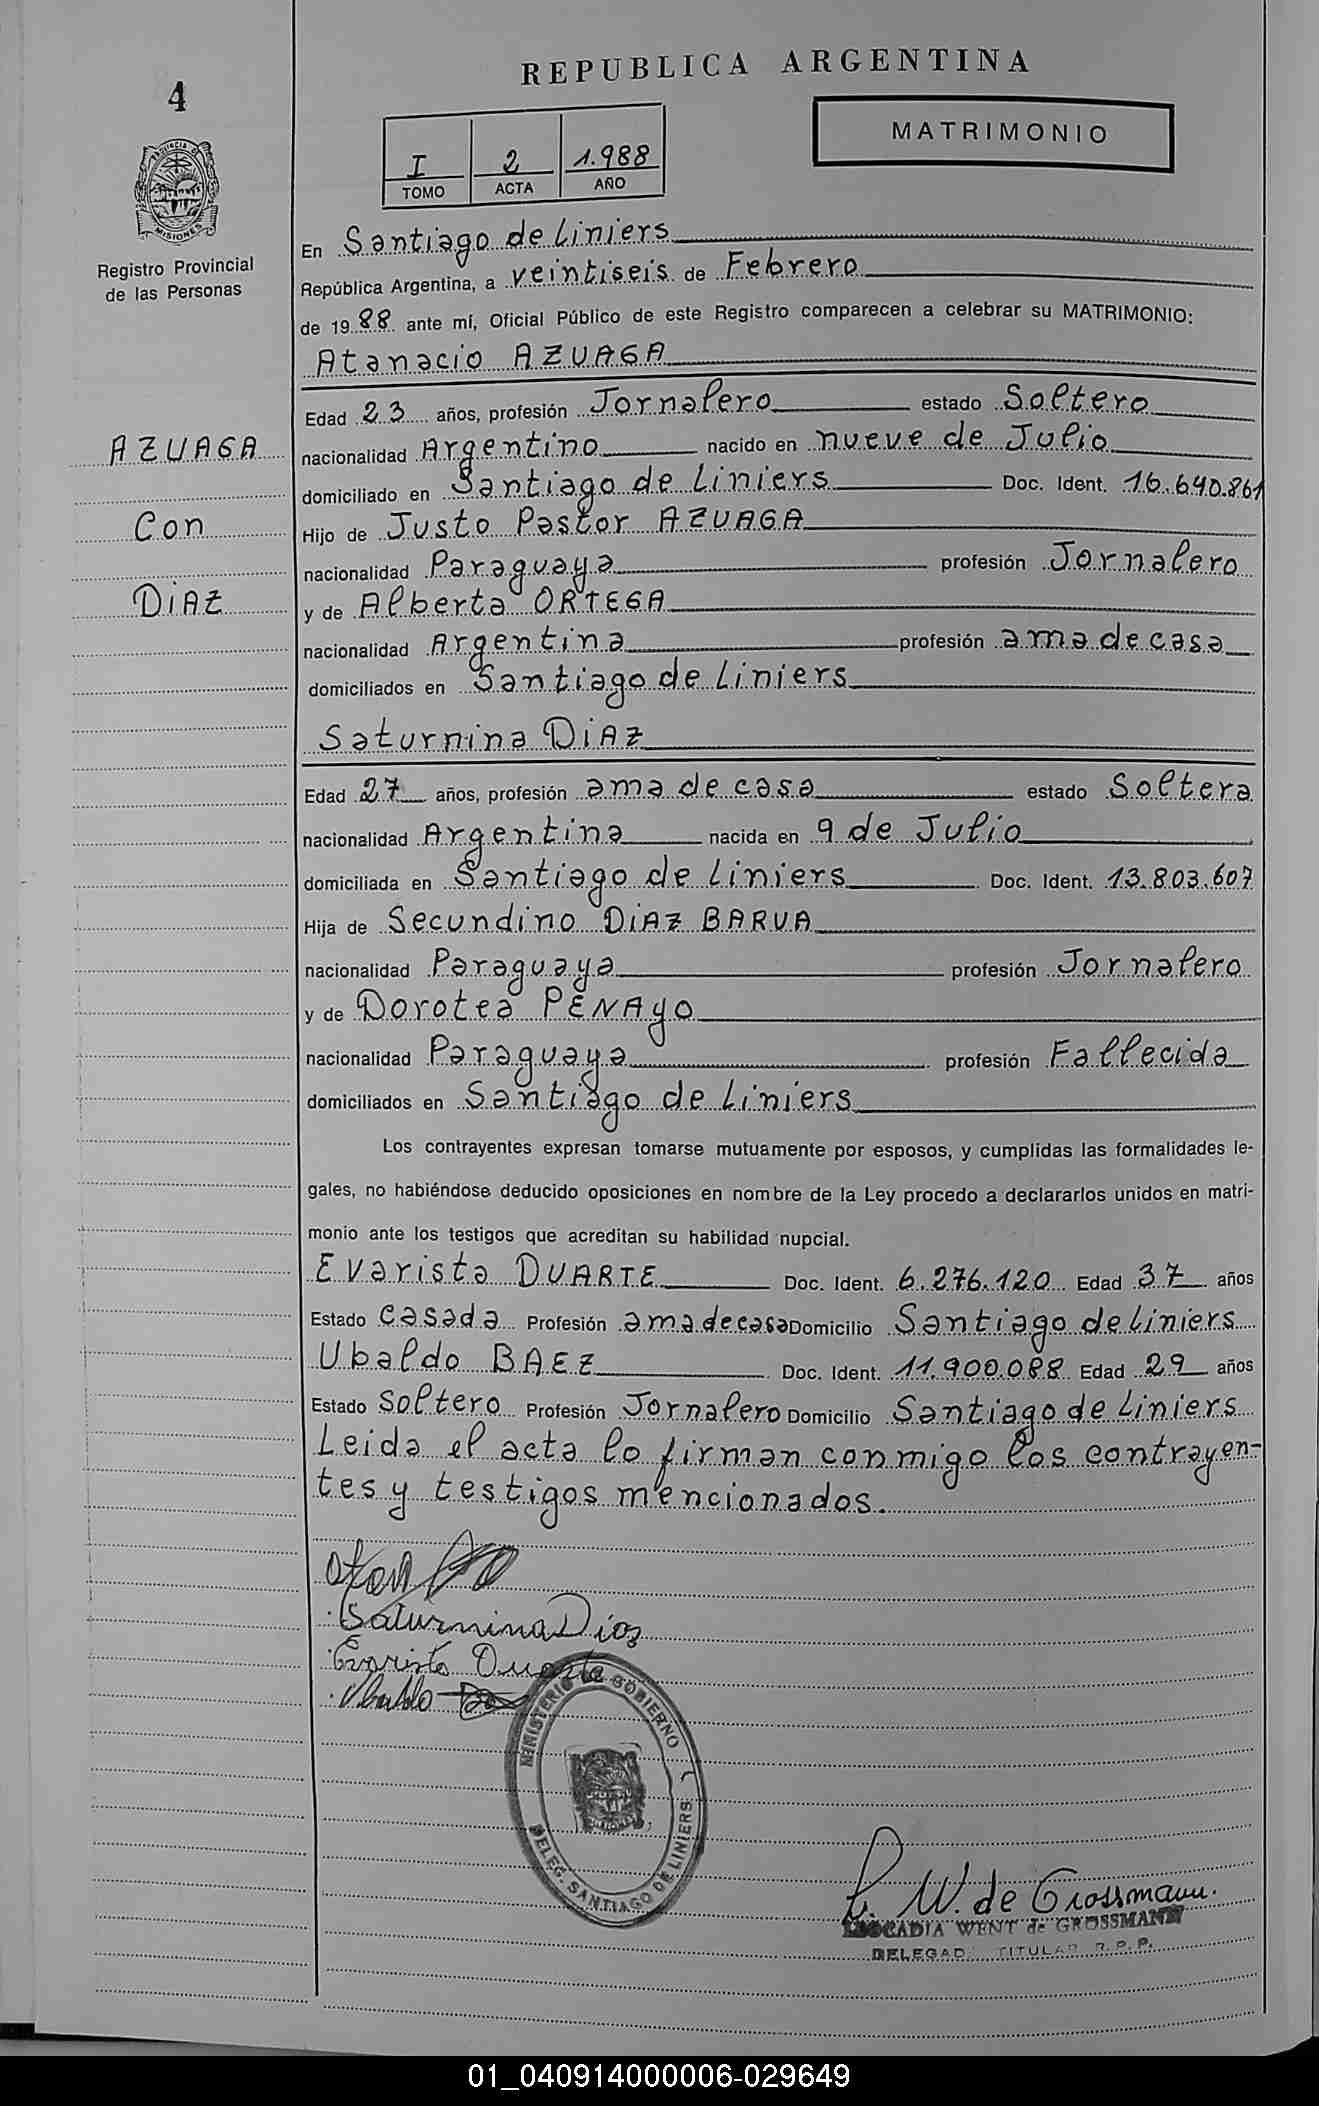 4
REPUBLICA ARGENTINA
MATRIMONIO
I 2 1.988
TOMO ACTA AÑO
MISIONES
Registro Provincial
de las Personas
En Santiago de Liniers
República Argentina, a veintiseis de Febrero
de 1988 ante mí, Oficial Público de este Registro comparecen a celebrar su MATRIMONIO:
Atanacio AZUAGA
Edad 23 años, profesión Jornalero estado Soltero
AZUAGA
nacionalidad Argentino nacido en nueve de Julio
domiciliado en Santiago de Liniers Doc. Ident. 16.640.861
Con
Hijo de Justo Pastor AZUAGA
nacionalidad Paraguaya profesión Jornalero
DIAZ
y de Alberta ORTEGA
nacionalidad Argentina profesión ama de casa
domiciliados en Santiago de Liniers
Saturnina DIAZ
Edad 27 años, profesión ama de casa estado Soltera
nacionalidad Argentina nacida en 9 de Julio
domiciliada en Santiago de Liniers Doc. Ident. 13.803.607
Hija de Secundino DIAZ BARUA
nacionalidad Paraguaya profesión Jornalero
y de Dorotea PENAyO
nacionalidad Paraguaya profesión Fallecida
domiciliados en Santiago de Liniers
Los contrayentes expresan tomarse mutuamente por esposos, y cumplidas las formalidades le-
gales, no habiéndose deducido oposiciones en nombre de la Ley procedo a declararlos unidos en matri-
monio ante los testigos que acreditan su habilidad nupcial.
Evarista DUARTE Doc. Ident. 6.276.120 Edad 37 años
Estado Casada Profesión ama de casa Domicilio Santiago de Liniers
Ubaldo BAEZ Doc. Ident. 11.900.088 Edad 29 años
Estado Soltero Profesión Jornalero Domicilio Santiago de Liniers
Leida el acta lo firman conmigo los contrayen-
tes y testigos mencionados.
Saturnina Díaz
Evarista Duarte
Ubaldo
MINISTERIO DE GOBIERNO
DELEG. SANTIAGO DE LINIERS
L. W. de Grossmann.
LEOCADIA WENT de GROSSMANN
DELEGADA TITULAR R. P. P.
01_040914000006-029649